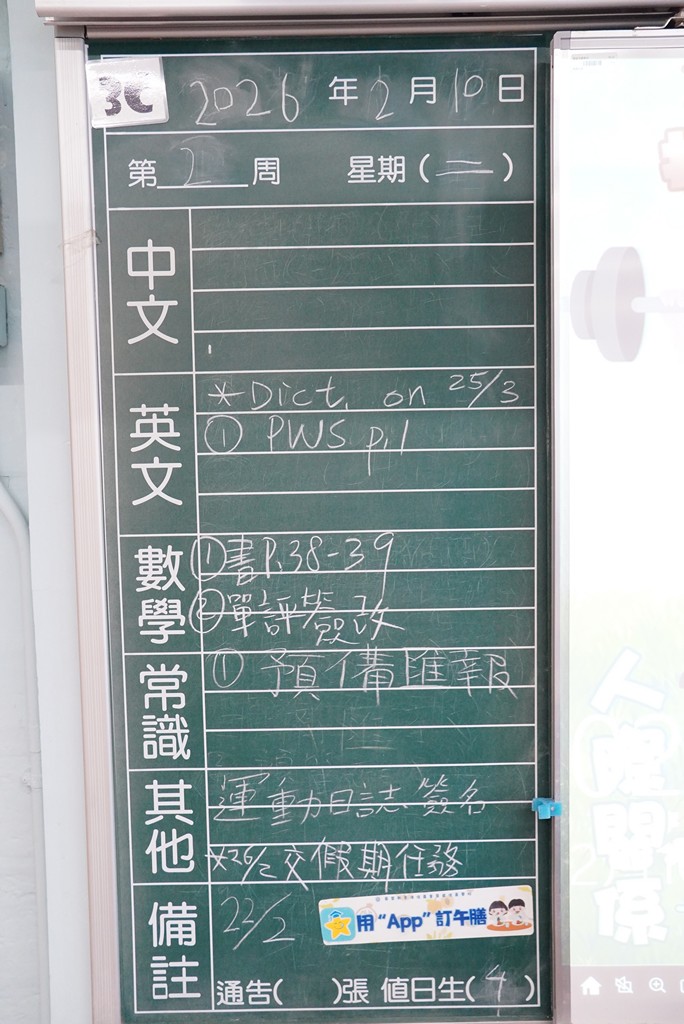 3C
2026 年 2 月 10 日
第 2 周 星期(二)
中文
英文
*Dict. on 25/3
① PWS p.1
數學
①書P.38-39
②單評簽改
常識
① 預備匯報
其他
運動日誌簽名
*26/2交假期任務
備註
22/2
用“App”訂午膳
通告( )張 值日生(4)
人際關係